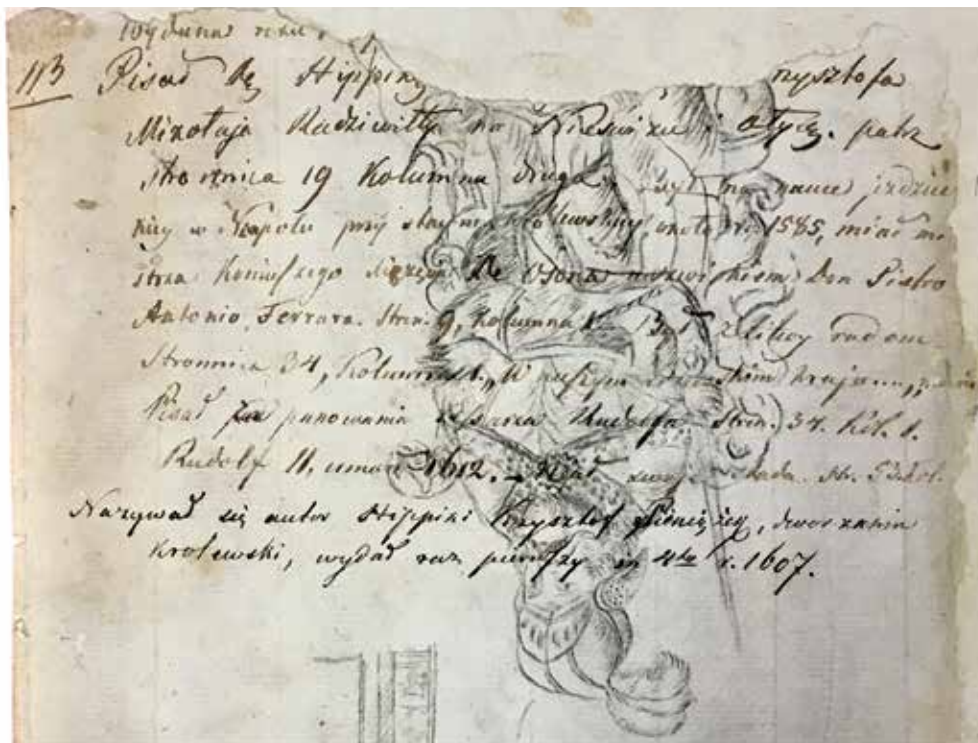 wydana roku
113 Pisał tę Hippikę rzysztofa
Mikołaja Radziwiłła na Nieświżu i Ołyce. patrz
stronnica 19 Kolumna druga, był na nauce jezdzie
ckiey w Neapolu przy stayni królewskiey, około r. 1585, miał mi
strza Koniuszego de Osona nazwiskiem Don Pietro
Antonio Ferrara. Stron. 9, Kolumna Był z Litwy rodem
Stronnica 34, Kolumna 1. „W naszym kraju
Pisał za panowania cesarza Rudolfa Stron. 34. Kol. 1.
Rudolf II. umarł 1612. Miał
Nazywał się autor Hippiki Krzysztof Pieniążek, dworzanin
Krolewski, wydał raz pierwszy in 4to r. 1607.